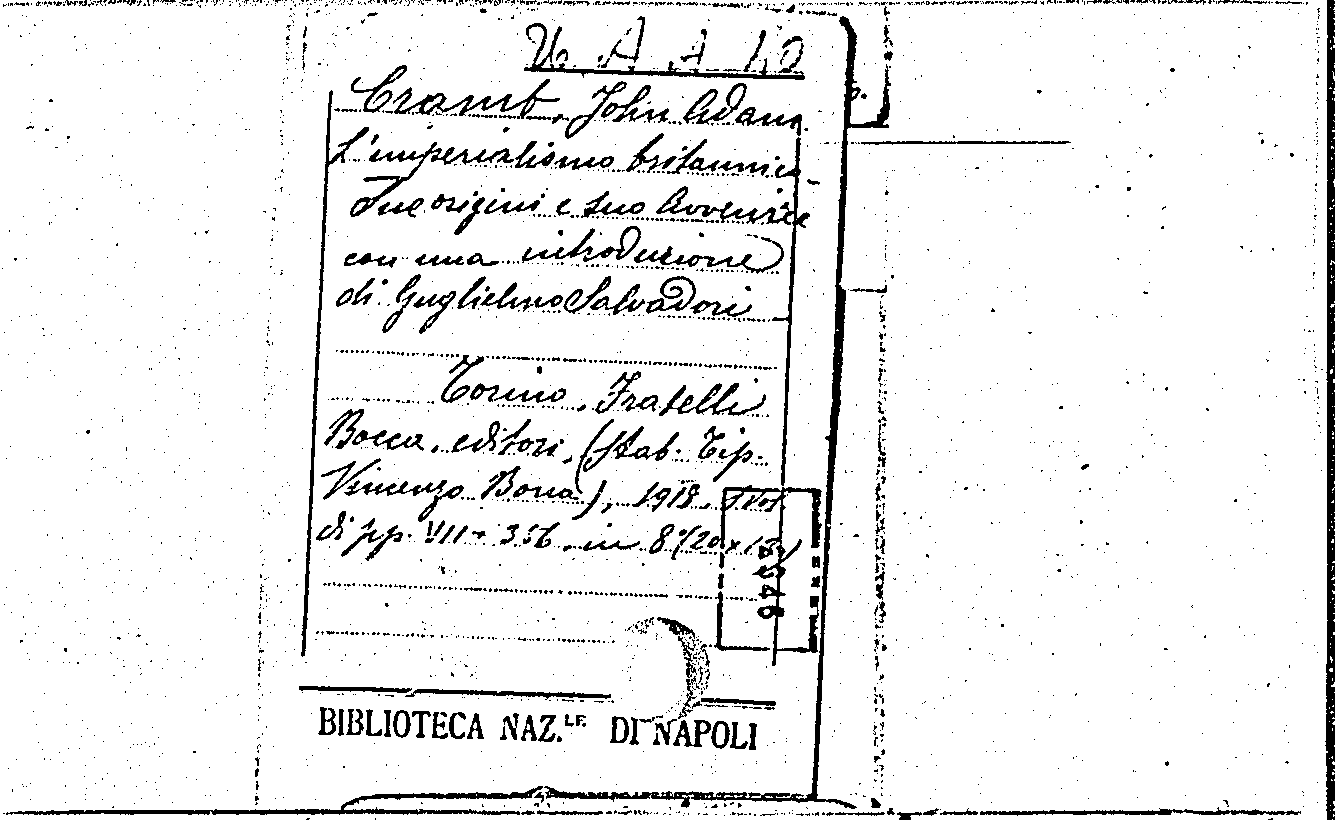 Cramb, John Adam
L'imperialismo britannico
Sue origini e suo avvenire
con una introduzione
di Guglielmo Salvadori
Torino, Fratelli
Bocca, editori, (Stab. Tip.
Vincenzo Bona), 1918. 1 vol
di pp. VII + 356. in 8º (20 x 13)
BIBLIOTECA NAZ.LE DI NAPOLI